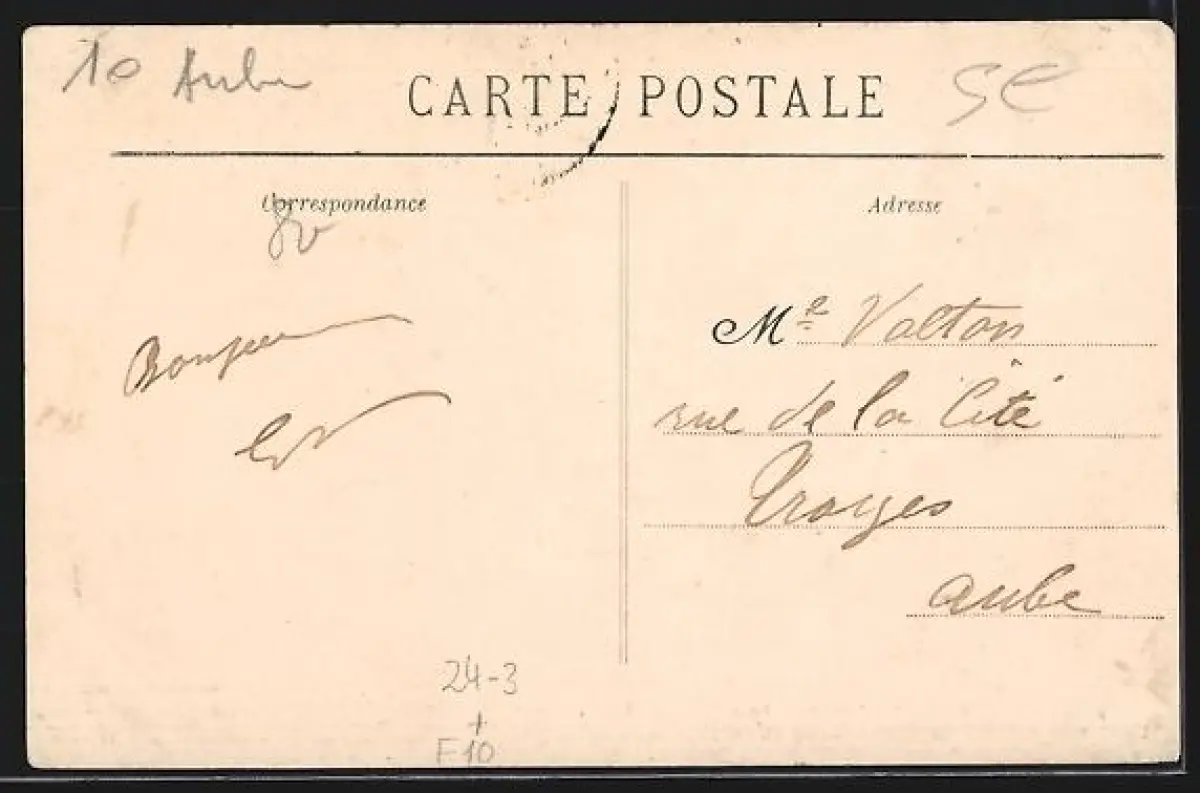 10 Aube
CARTE POSTALE
Correspondance
Adresse
80
Bonjour
Mr Valton
rue de la Cité
Troyes
Aube
24-3
+
F10